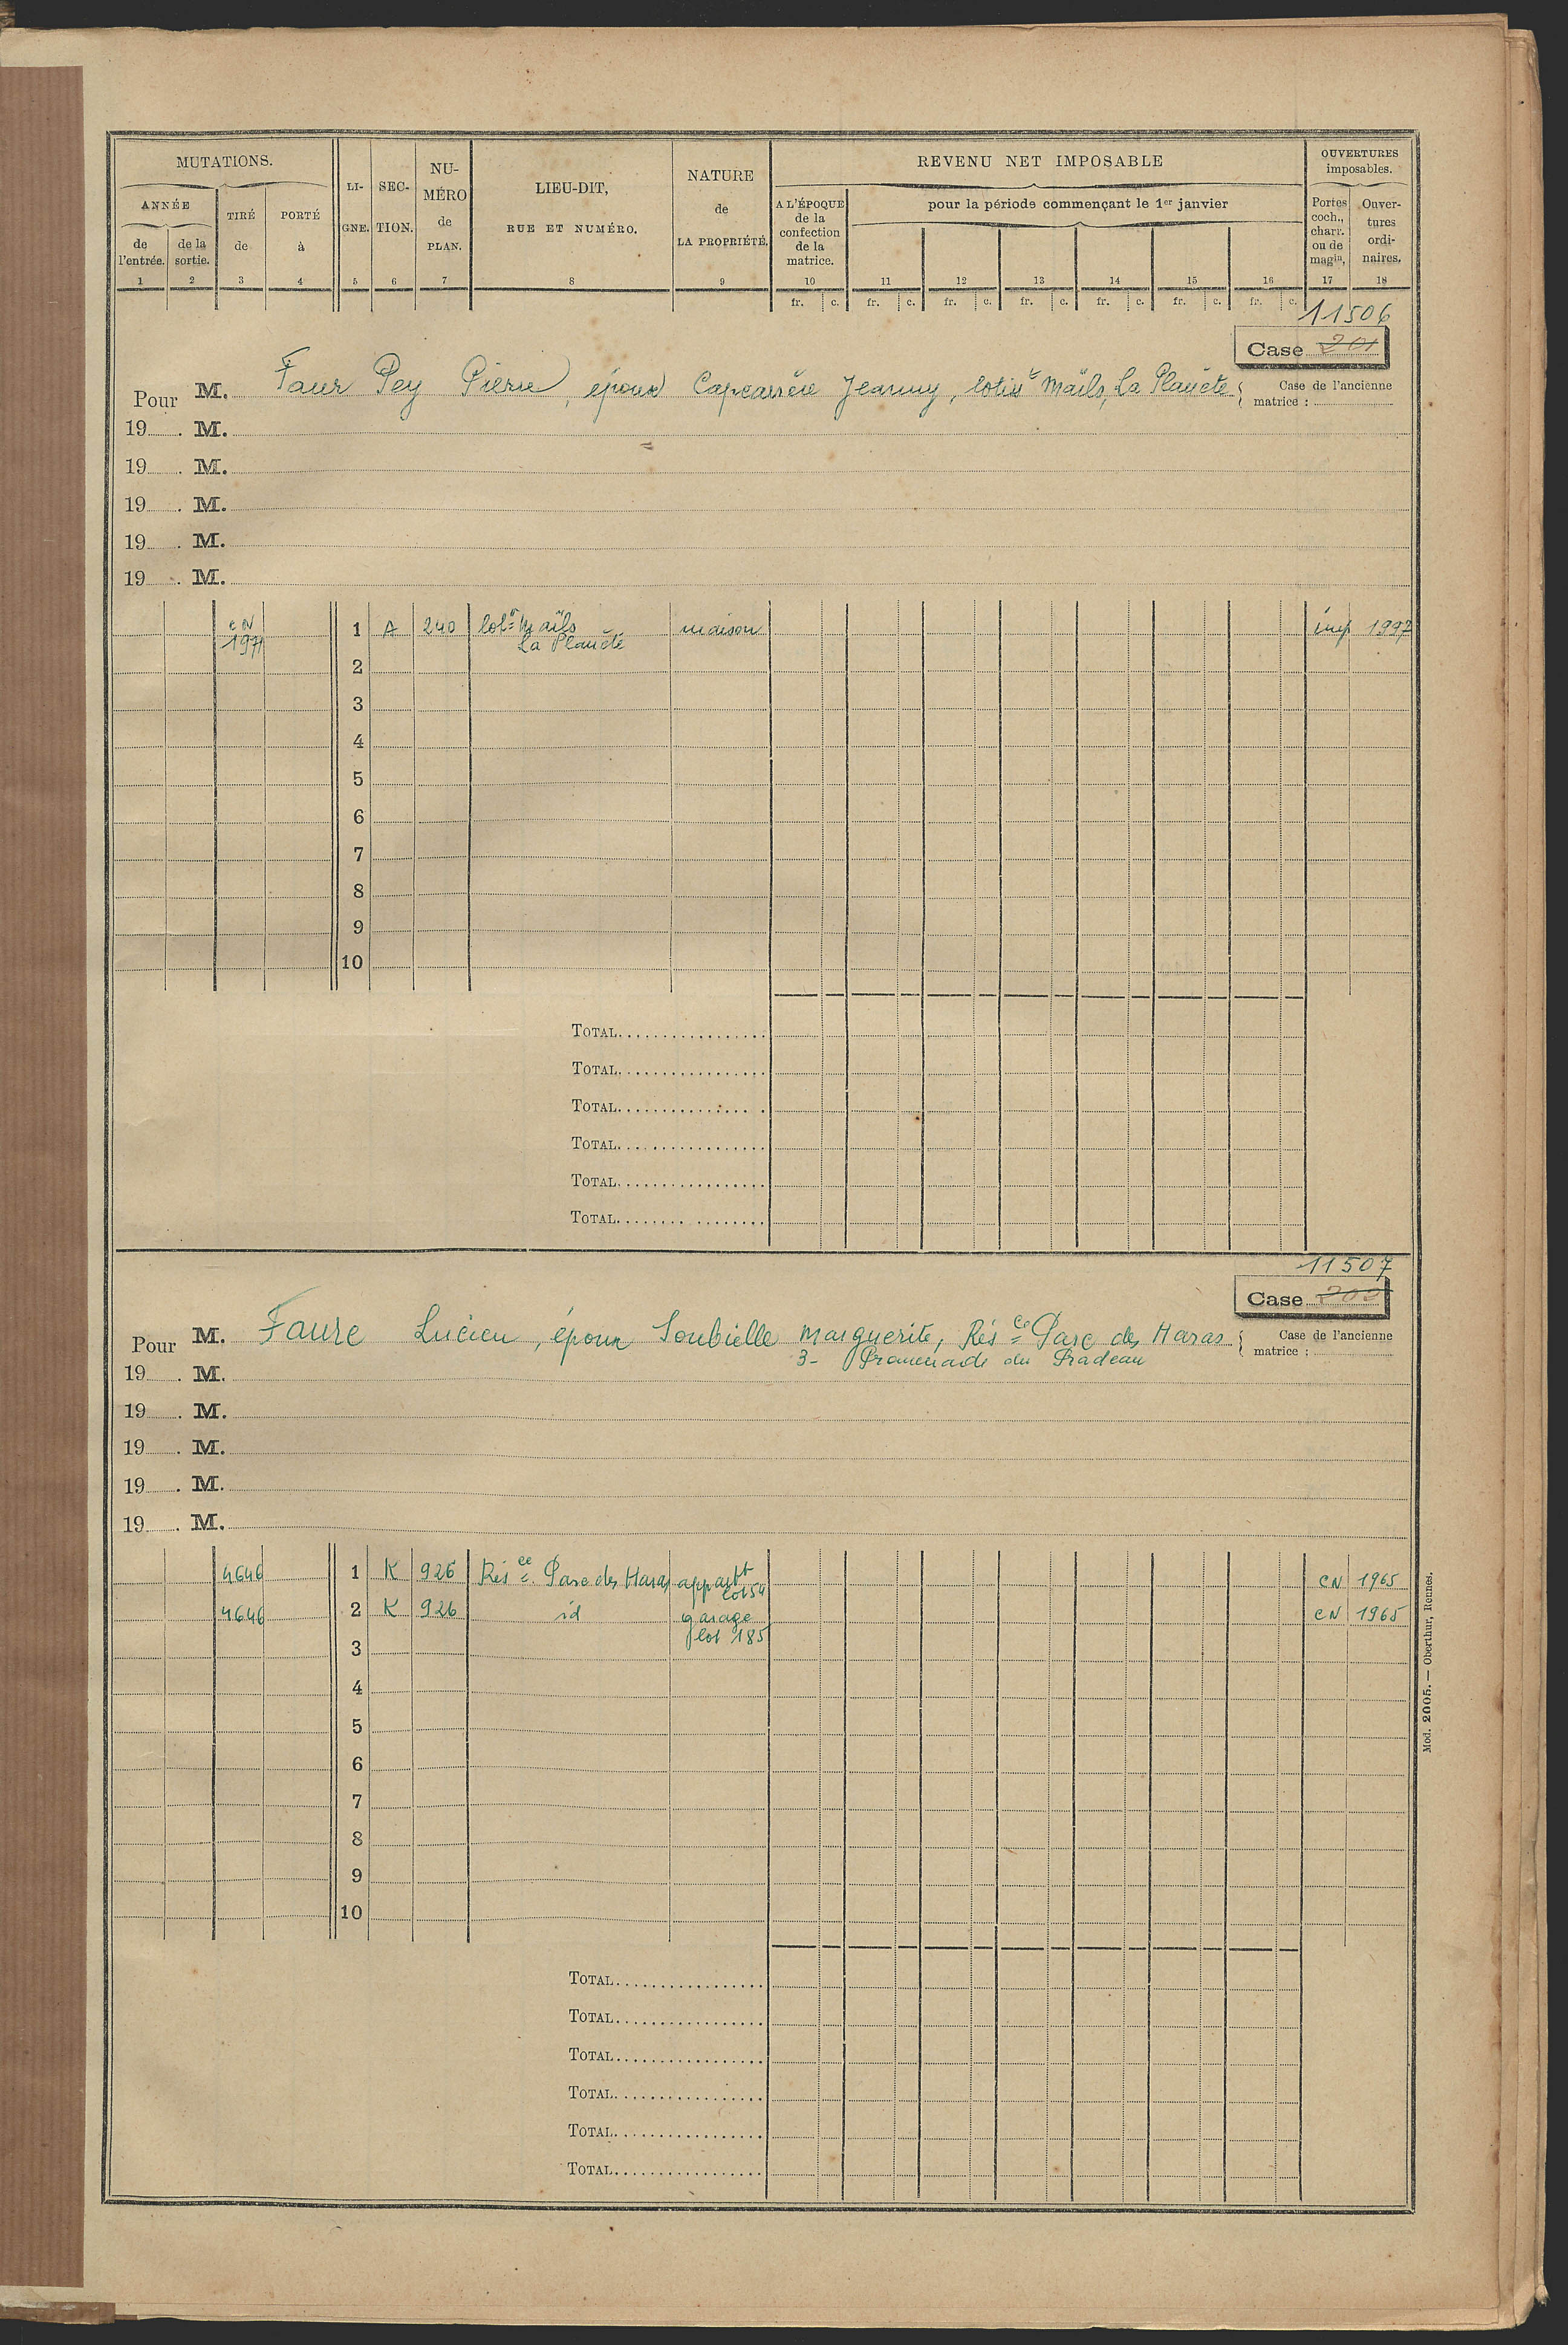 MUTATIONS.
ANNÉE
de l'entrée.
de la sortie.
TIRÉ de
PORTÉ à
LI-GNE.
SEC-TION.
NU-MÉRO de PLAN.
LIEU-DIT,
RUE ET NUMÉRO.
NATURE
de
LA PROPRIÉTÉ.
REVENU NET IMPOSABLE
A L'ÉPOQUE de la confection de la matrice.
pour la période commençant le 1er janvier
OUVERTURES imposables.
Portes coch., charr. ou de magin,
Ouver-tures ordi-naires.
1 2 3 4 5 6 7 8 9 10 11 12 13 14 15 16 17 18
fr. c. fr. c. fr. c. fr. c. fr. c. fr. c. fr. c.
11506
Case 201
Pour M. Faur Pey Pierre, époux Capcarrère Jeanny, lotist Maïls, La Planète
Case de l'ancienne matrice :
19 . M.
19 . M.
19 . M.
19 . M.
19 . M.
CN 1971 1 A 240 lott Maïls maison imp 1997
La Planète
2
3
4
5
6
7
8
9
10
TOTAL
TOTAL
TOTAL
TOTAL
TOTAL
TOTAL
11507
Case 202
Pour M. Faure Lucien, époux Soubielle Marguerite, Résce Parc des Haras
3- Promenade du Pradeau
Case de l'ancienne matrice :
19 . M.
19 . M.
19 . M.
19 . M.
19 . M.
4646 1 K 926 Résce Parc des Haras appartt lot 54 CN 1965
4646 2 K 926 id garage CN 1965
lot 185
3
4
5
6
7
8
9
10
TOTAL
TOTAL
TOTAL
TOTAL
TOTAL
TOTAL
Mod. 2005. — Oberthur, Rennes.